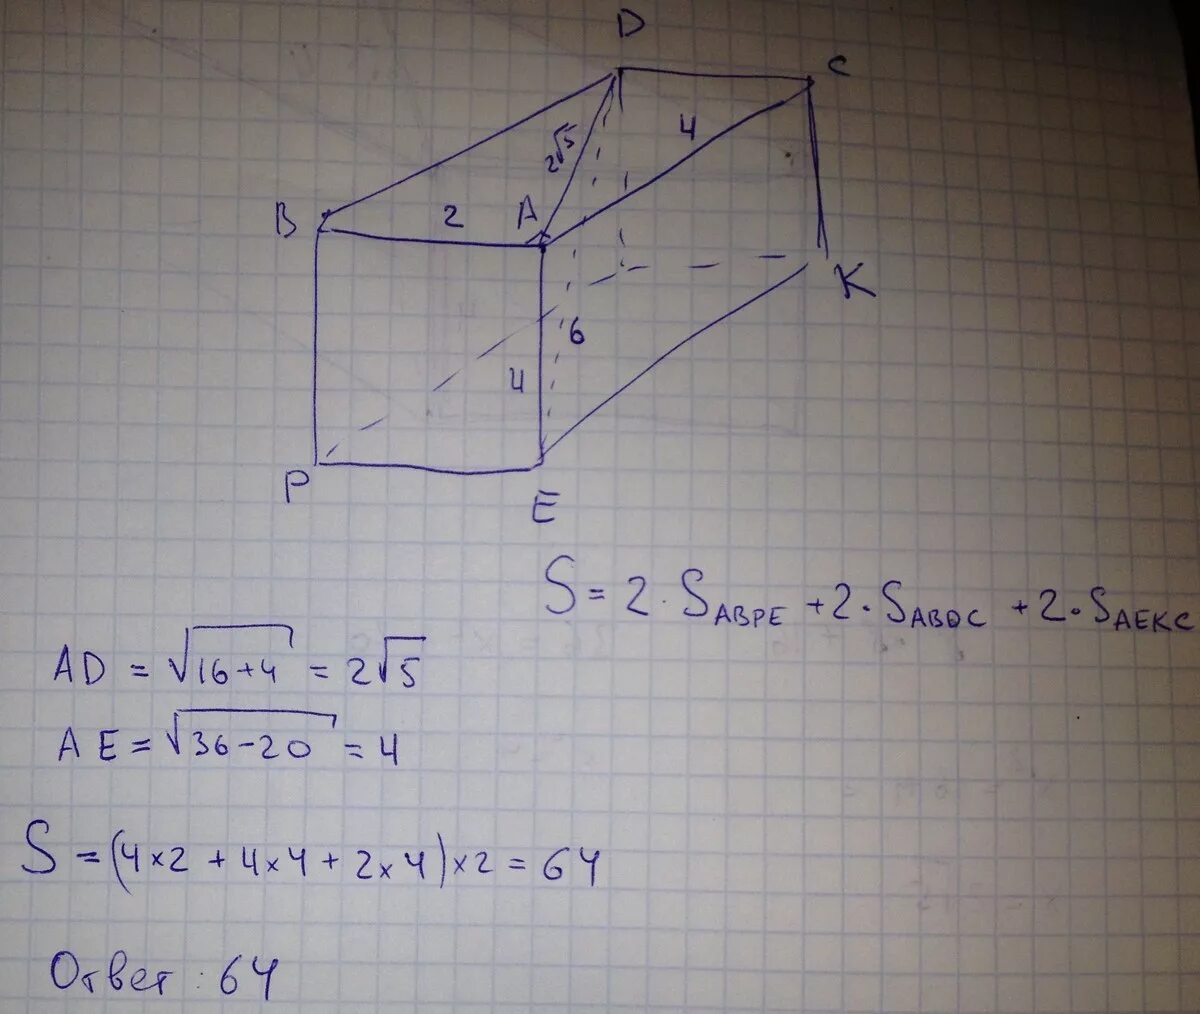 D
C
4
2√5
B
2
A
K
6
4
P
E
S = 2 · S ABPE + 2 · S ABDC + 2 · S AEKC
AD = √16+4 = 2√5
AE = √36-20 = 4
S = (4×2 + 4×4 + 2×4)×2 = 64
Ответ : 64